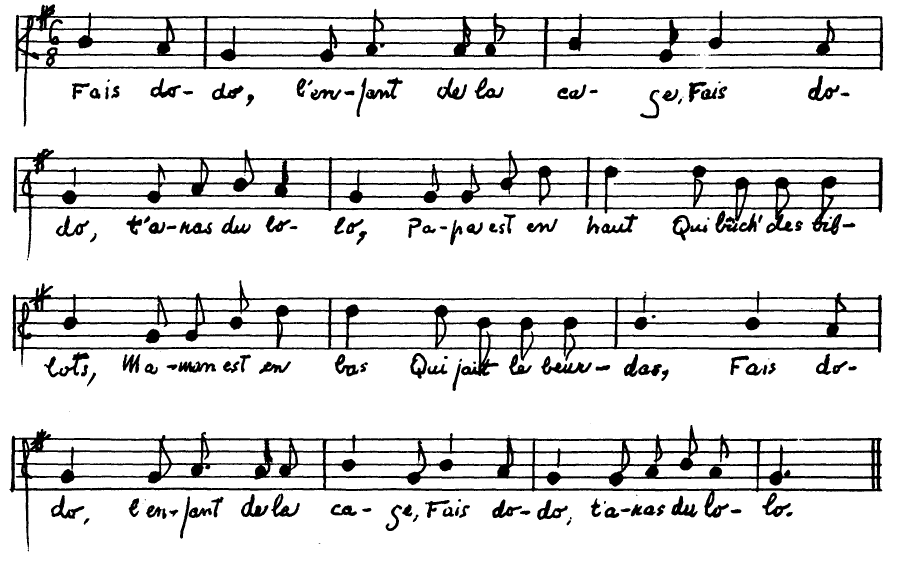 6
8
Fais do- do, l'en-fant de la ca- ge, Fais do-
do, t'a-ras du lo- lo, Pa-pa est en haut Qui bûch' des bib-
lots, Ma-man est en bas Qui fait le beur- das, Fais do-
do, l'en-fant de la ca- ge, Fais do- do, t'a-ras du lo- lo.